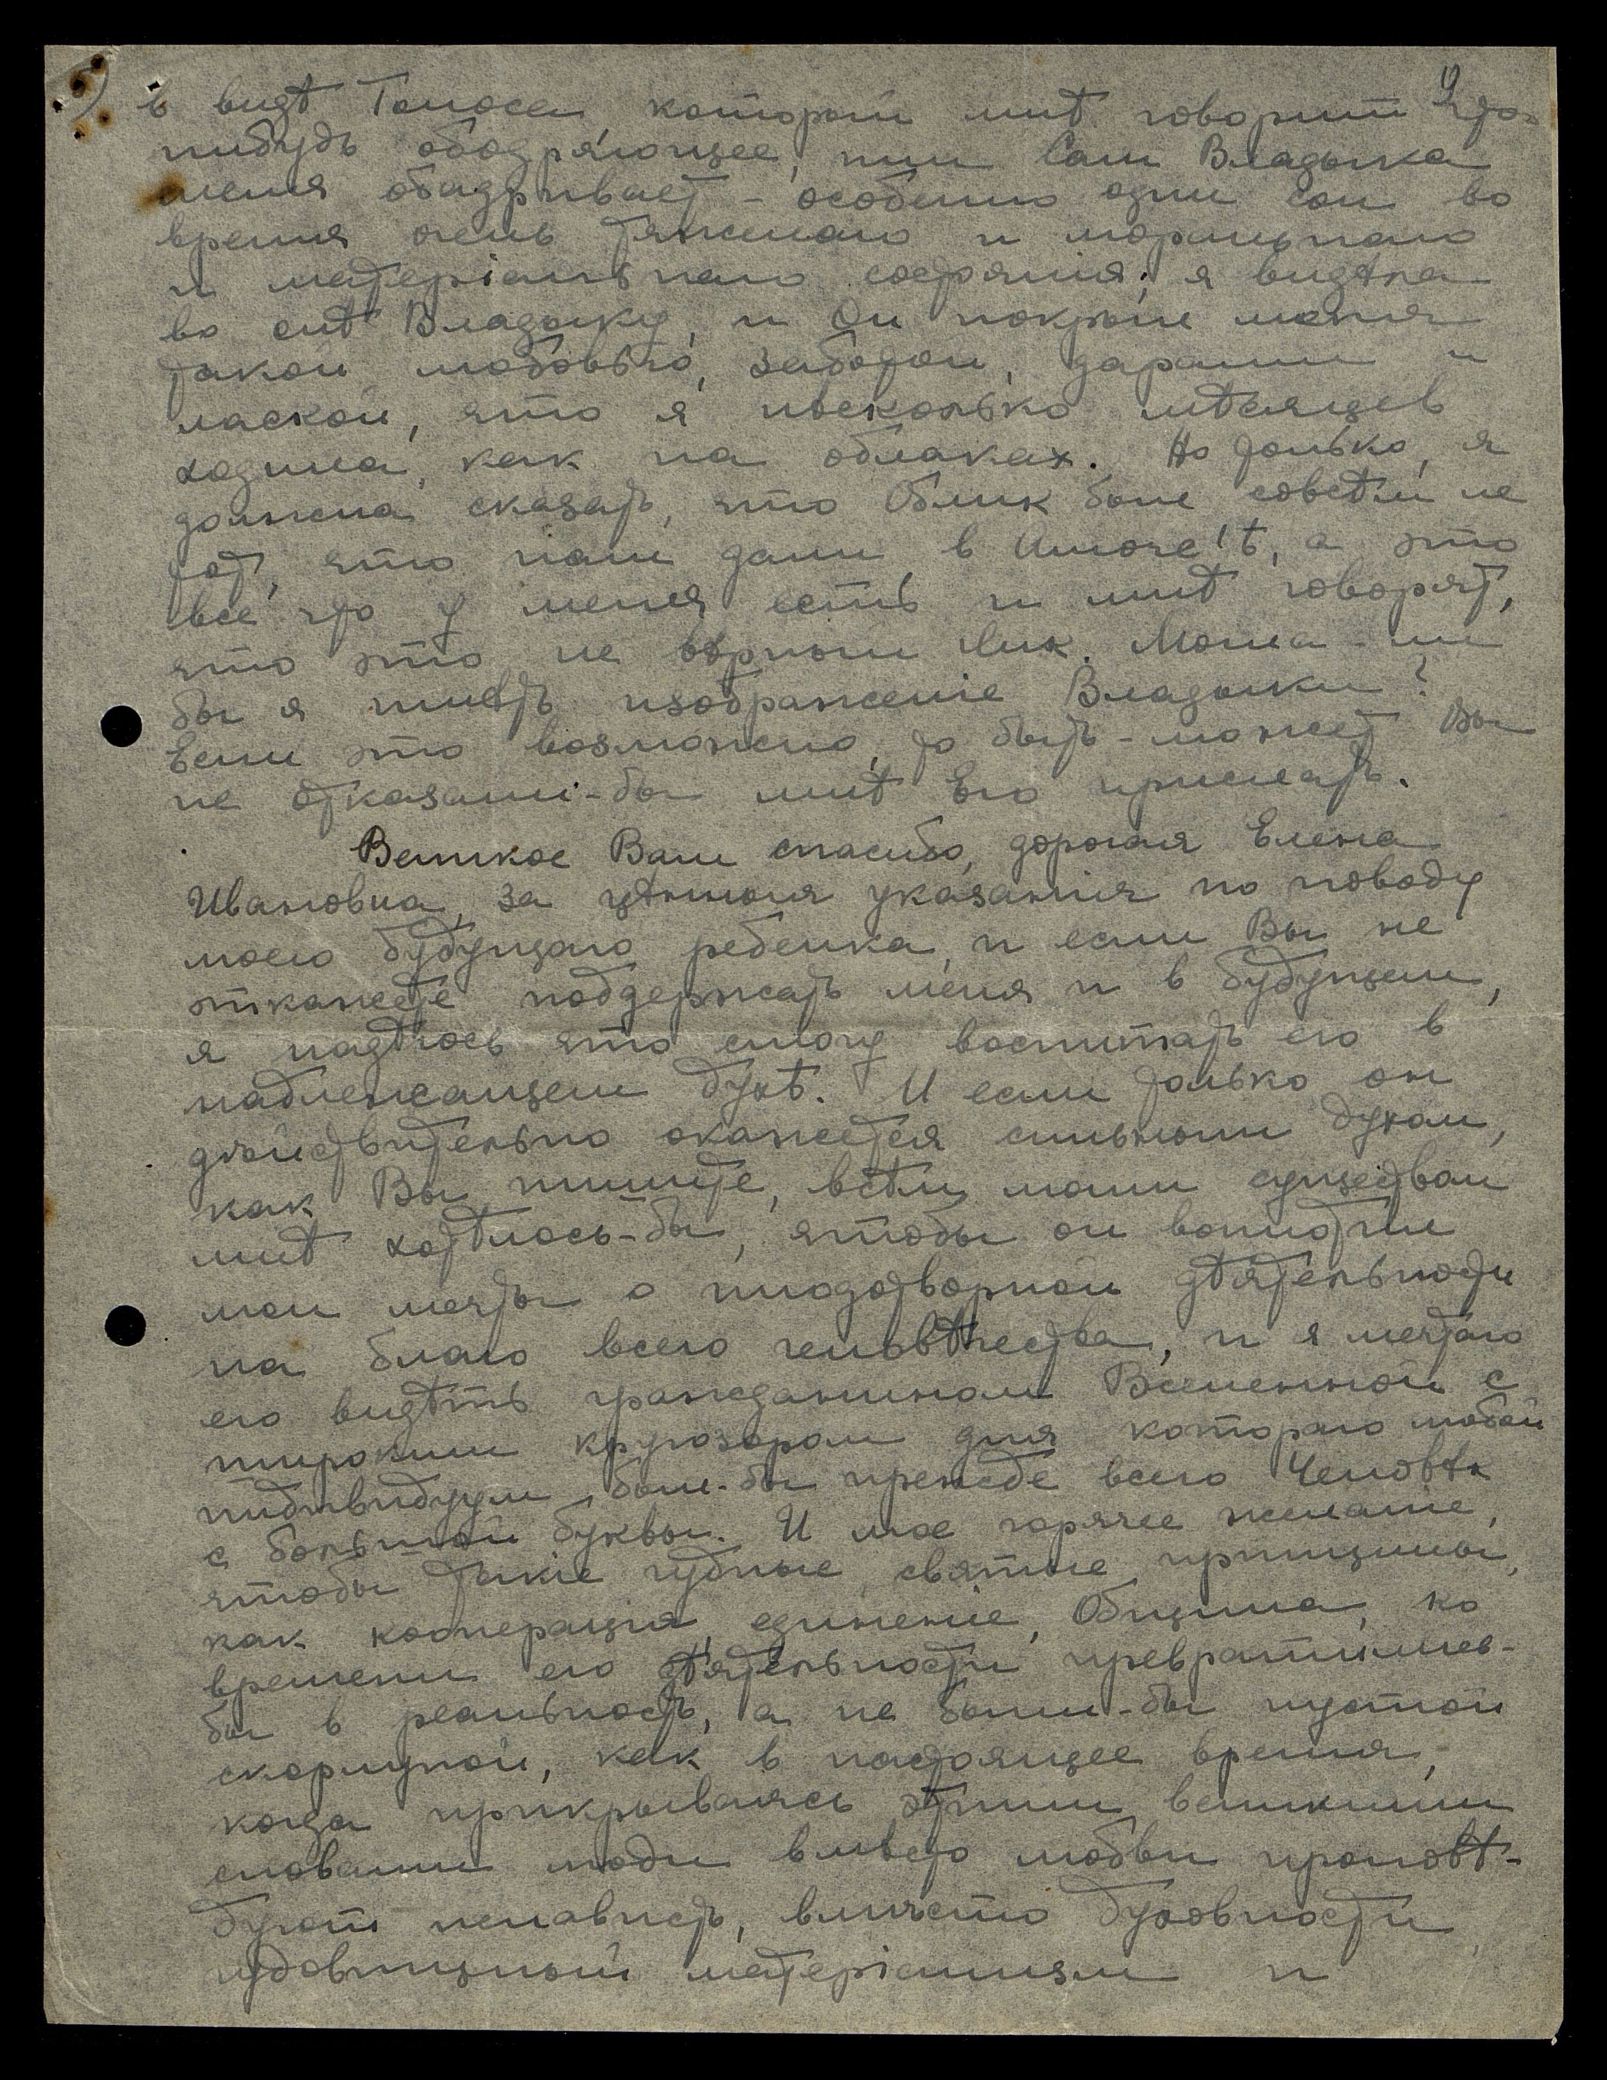 в видѣ Голоса, который мнѣ говорит что-
нибудь ободряющее, или Сам Владыка
меня обадривает - особенно один сон во
время очень тяжелаго и моральнаго
и матеріальнаго состоянія; я видѣла
во снѣ Владыку, и Он покрыл меня
такой любовью, заботой, дарами и
лаской, что я нѣсколько мѣсяцев
ходила, как на облаках. Но только, я
должна сказать, что Облик был совсѣм не
тот, что нам дали в Имоче'ѣ, а это
все что у меня есть и мнѣ говорят,
что это не вѣрный Лик. Могла-ли
бы я имѣть изображеніе Владыки?
Если это возможно, то быть-может Вы
не отказали-бы мнѣ Его прислать.
Великое Вам спасибо, дорогая Елена
Ивановна, за цѣнныя указанія по поводу
моего будущаго ребенка, и если Вы не
откажете поддержать меня и в будущем,
я надѣюсь что смогу воспитать его в
надлежащем духѣ. И если только он
дѣйствительно окажется сильным духом,
как Вы пишите, всѣм моим существом
мнѣ хотѣлось-бы, чтобы он воплотил
мои мечты о плодотворной дѣятельности
на благо всего человѣчества, и я мечтаю
его видѣть гражданином Вселенной с
широким кругозором для котораго любой
индивидуум был-бы прежде всего Человѣк
с большой буквы. И мое горячее желаніе,
чтобы такіе чудные, святые принципы,
как кооперація, единеніе, Община, ко
времени его дѣятельности превратились-
бы в реальность, а не были-бы пустой
скорлупой, как в настоящее время,
когда прикрываясь этими великими
словами люди вмѣсто любви проповѣ-
дуют ненависть, вмѣсто духовности
чудовищный матеріализм и